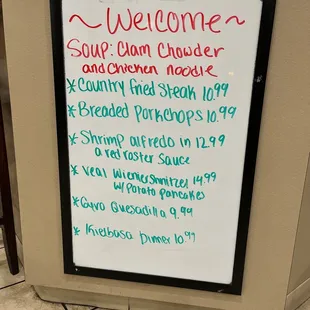 ~ Welcome ~
Soup: Clam Chowder
and Chicken noodle
* Country Fried Steak 10.99
* Breaded Porkchops 10.99
* Shrimp alfredo in 12.99
a red roster Sauce
* Veal Wienershnitzel 14.99
w/ Potato pancakes
* Gyro Quesadilla 9.99
* Kielbasa Dinner 10.99